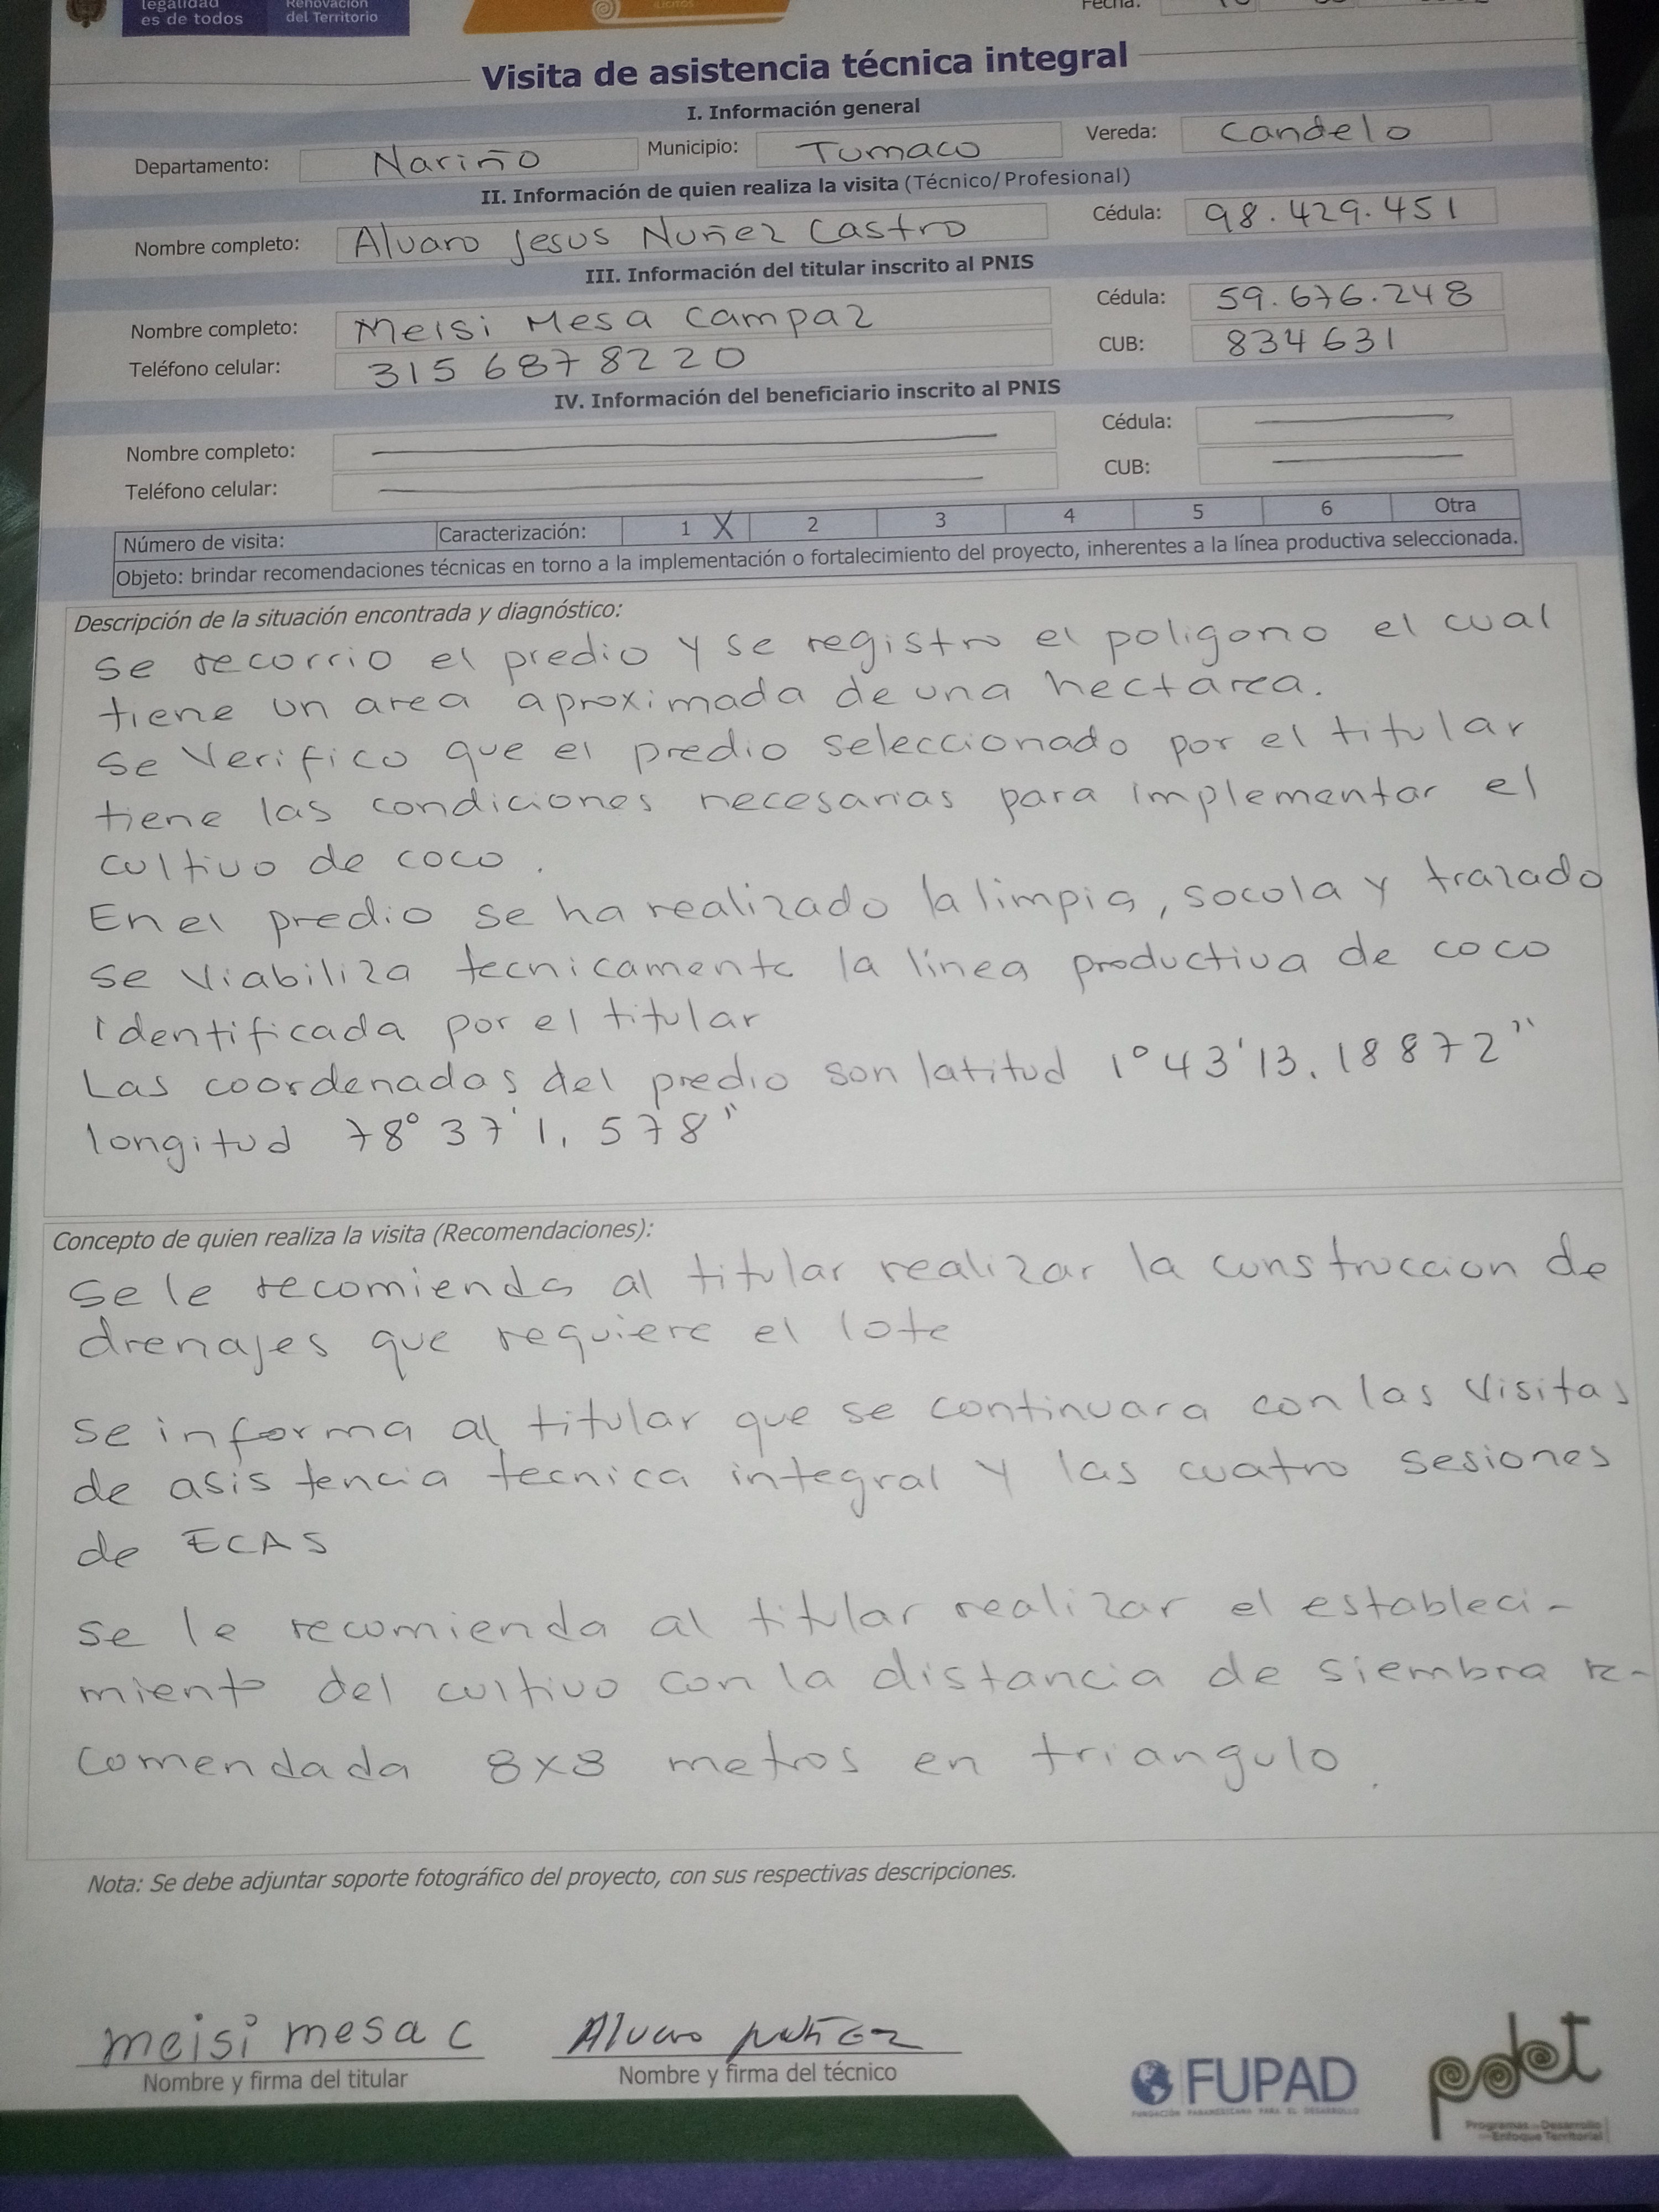 legalidad
es de todos
Renovación
del Territorio
ilícitos
Fecha:
Visita de asistencia técnica integral
I. Información general
Departamento: Nariño Municipio: Tumaco Vereda: Candelo
II. Información de quien realiza la visita (Técnico/Profesional)
Nombre completo: Alvaro Jesus Nuñez Castro Cédula: 98.429.451
III. Información del titular inscrito al PNIS
Nombre completo: Meisi Mesa Campaz Cédula: 59.676.248
Teléfono celular: 315 687 8220 CUB: 834631
IV. Información del beneficiario inscrito al PNIS
Nombre completo: Cédula:
Teléfono celular: CUB:
Número de visita: Caracterización: 1 X 2 3 4 5 6 Otra
Objeto: brindar recomendaciones técnicas en torno a la implementación o fortalecimiento del proyecto, inherentes a la línea productiva seleccionada.
Descripción de la situación encontrada y diagnóstico:
se recorrio el predio y se registro el poligono el cual
tiene un area aproximada de una hectarea.
se verifico que el predio seleccionado por el titular
tiene las condiciones necesarias para implementar el
cultivo de coco.
En el predio se ha realizado la limpia, socola y trazado
se viabiliza tecnicamente la linea productiva de coco
identificada por el titular
Las coordenadas del predio son latitud 1°43'13.18872"
longitud 78°37'1,578"
Concepto de quien realiza la visita (Recomendaciones):
se le recomienda al titular realizar la construccion de
drenajes que requiere el lote
se informa al titular que se continuara con las visitas
de asistencia tecnica integral y las cuatro sesiones
de ECAS
se le recomienda al titular realizar el estableci-
miento del cultivo con la distancia de siembra re-
comendada 8x8 metros en triangulo.
Nota: Se debe adjuntar soporte fotográfico del proyecto, con sus respectivas descripciones.
meisi mesa c Alvaro nuñez
Nombre y firma del titular Nombre y firma del técnico
FUPAD
FUNDACIÓN PANAMERICANA PARA EL DESARROLLO
pdet
Programas de Desarrollo
con Enfoque Territorial